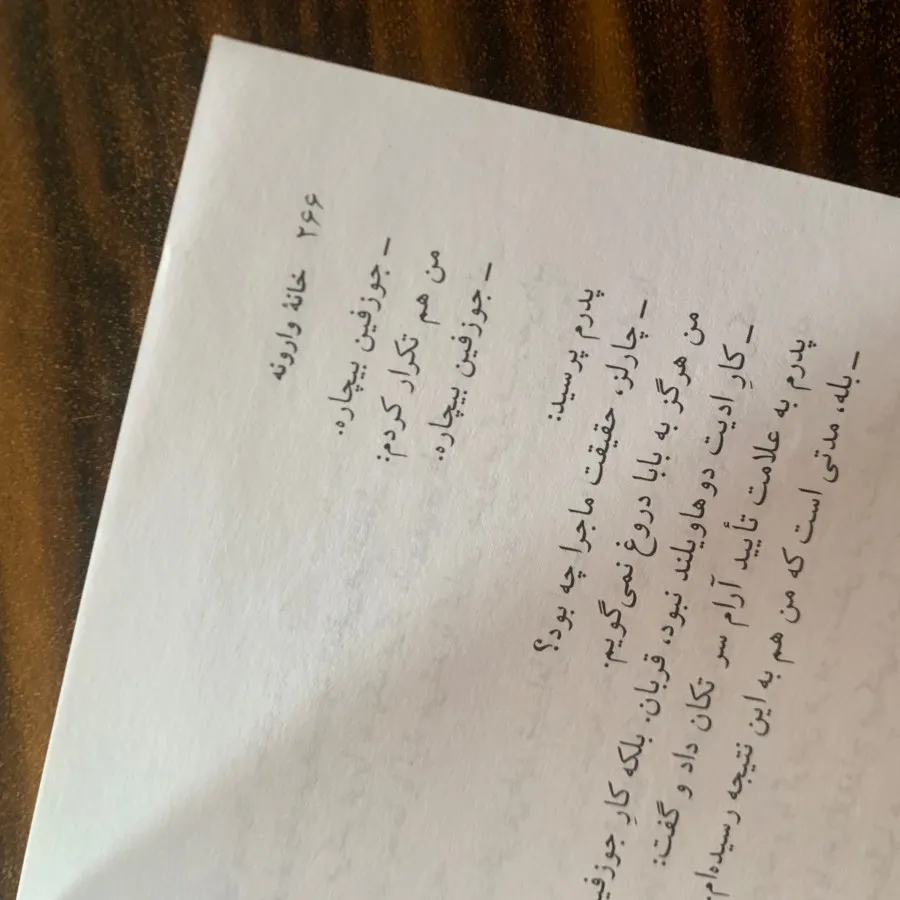 ۲۶۶ خانهٔ وارونه
ـ جوزفین بیچاره.
من هم تکرار کردم:
ـ جوزفین بیچاره.
پدرم پرسید:
ـ چارلز، حقیقت ماجرا چه بود؟
من هرگز به بابا دروغ نمی‌گویم.
ـ کارِ ادیت دوهاویلند نبود، قربان. بلکه کارِ
پدرم به علامت تأیید آرام سر تکان داد و گفت:
ـ بله، مدتی است که من هم به این نتیجه رسیده‌ام.